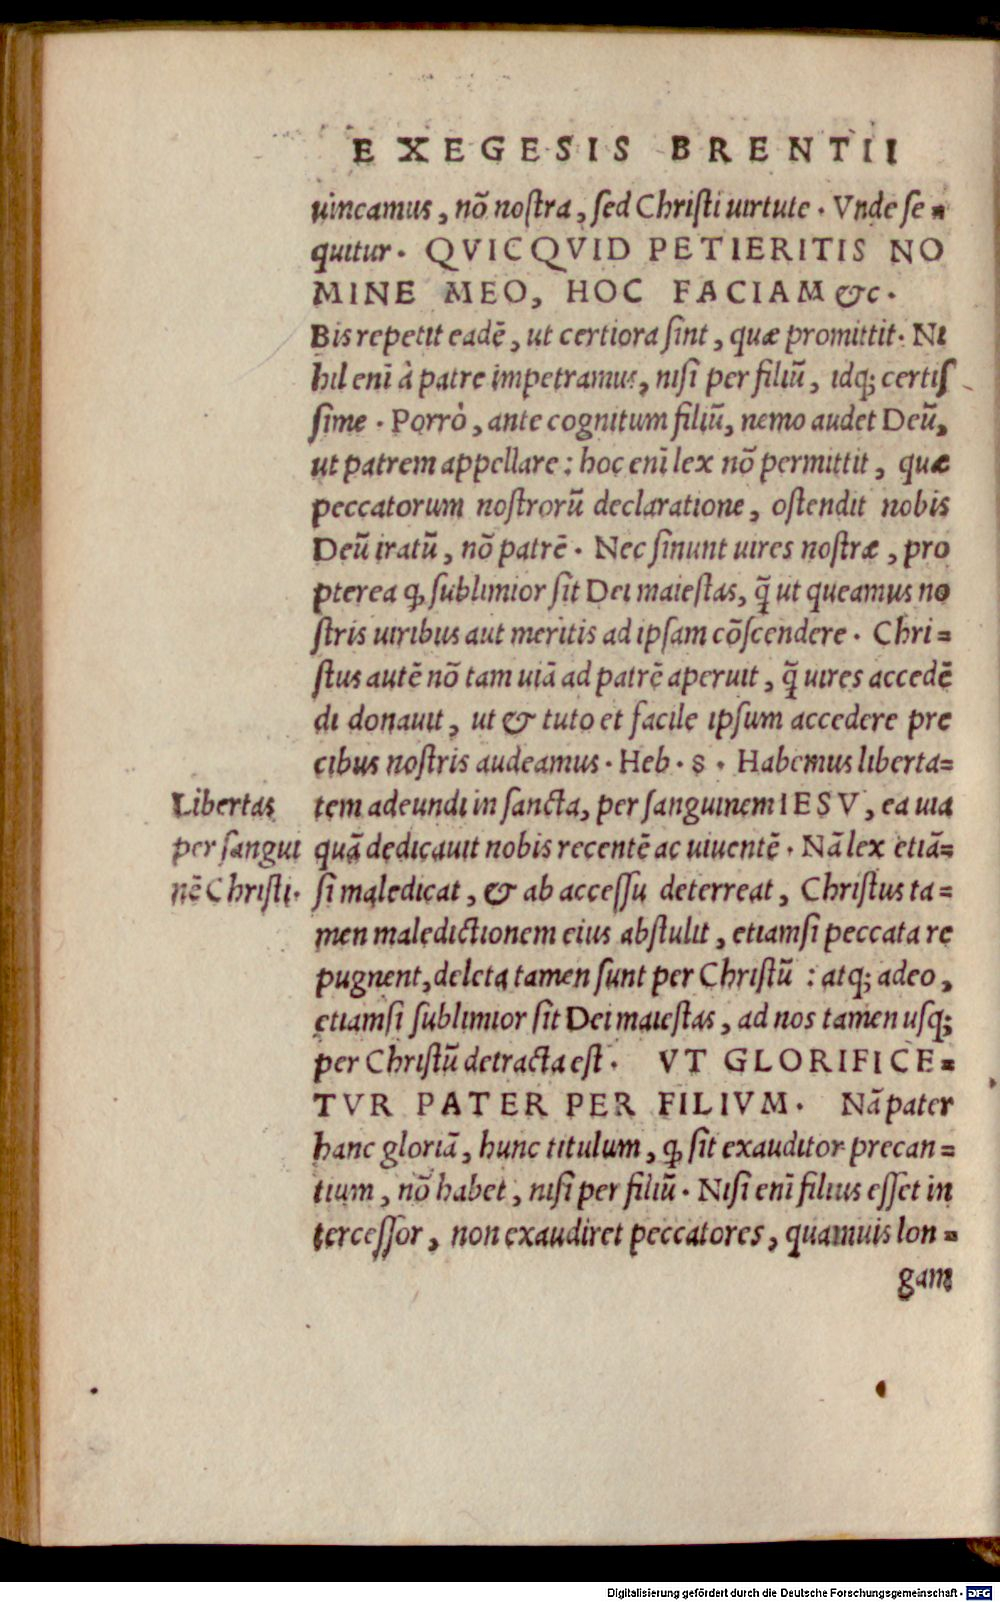 EXEGESIS BRENTII
uincamus, nõ noſtra, ſed Chriſti uirtute. Vnde ſe=
quitur. QVICQVID PETIERITIS NO
MINE MEO, HOC FACIAM &c.
Bis repetit eadẽ, ut certiora ſint, quæ promittit. Ni
hil enĩ à patre impetramus, niſi per filiũ, idq; certiſ
ſime. Porrò, ante cognitum filiũ, nemo audet Deũ,
ut patrem appellare: hoc enĩ lex nõ permittit, quæ
peccatorum noſtrorũ declaratione, oſtendit nobis
Deũ iratũ, nõ patrẽ. Nec ſinunt uires noſtræ, pro
pterea ꝙ ſublimior ſit Dei maieſtas, q̃ ut queamus no
ſtris uiribus aut meritis ad ipſam cõſcendere. Chri=
ſtus autẽ nõ tam uiã ad patrẽ aperuit, q̃ uires accedẽ
di donauit, ut & tuto et facile ipſum accedere pre
cibus noſtris audeamus. Heb. 8. Habemus liberta=
tem adeundi in ſancta, per ſanguinem IESV, ea uia
quã dedicauit nobis recentẽ ac uiuentẽ. Nã lex etiã=
ſi maledicat, & ab acceſſu deterreat, Chriſtus ta=
men maledictionem eius abſtulit, etiamſi peccata re
pugnent, deleta tamen ſunt per Chriſtũ: atq; adeo,
etiamſi ſublimior ſit Dei maieſtas, ad nos tamen uſq;
per Chriſtũ detracta eſt. VT GLORIFICE=
TVR PATER PER FILIVM. Nã pater
hanc gloriã, hunc titulum, ꝙ ſit exauditor precan=
tium, nõ habet, niſi per filiũ. Niſi enĩ filius eſſet in
terceſſor, non exaudiret peccatores, quamuis lon=
gam
Libertas
per ſangui
nẽ Chriſti.
Digitalisierung gefördert durch die Deutsche Forschungsgemeinschaft - DFG